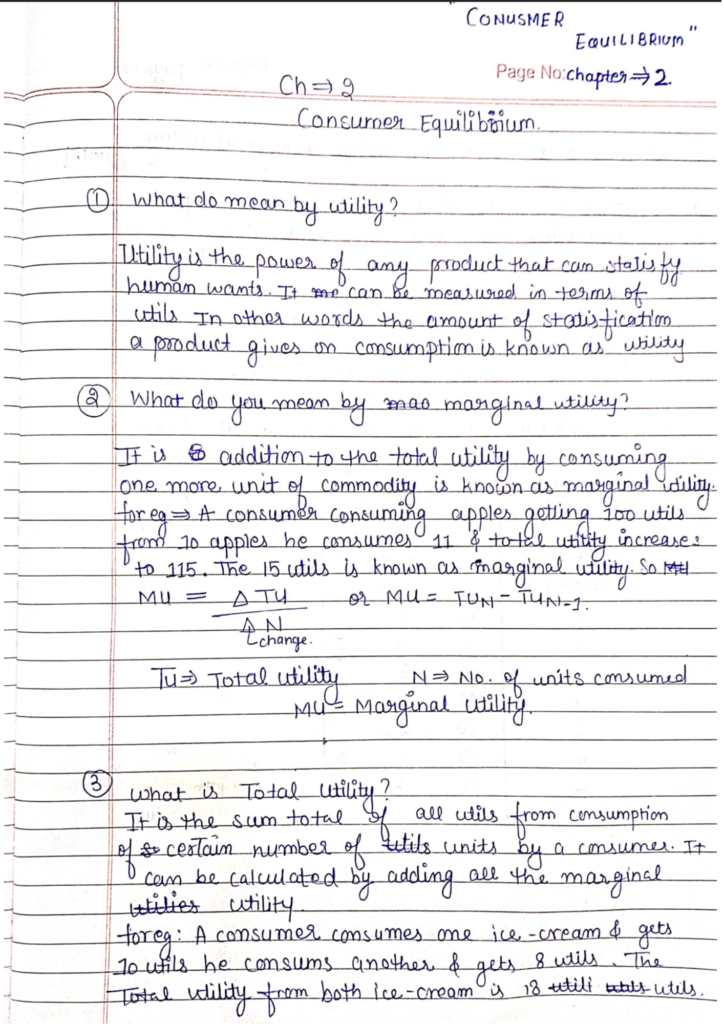 "CONUSMER
EQUILIBRIUM"
Page No: chapter ⇒ 2.
Ch ⇒ 2
Consumer Equilibrium.
① What do mean by utility?
Utility is the power of any product that can statisfy
human wants. It can be measured in terms of
utils In other words the amount of statisfication
a product gives on consumption is known as utility
② What do you mean by marginal utility?
It is addition to the total utility by consuming
one more unit of commodity is known as marginal utility.
for eg ⇒ A consumer consuming apples getting 100 utils
from 10 apples he consumes 11 & total utility increases
to 115. The 15 utils is known as marginal utility. So
MU = Δ TU or MU = TUN - TUN-1.
Δ N
change.
TU ⇒ Total utility N ⇒ No. of units consumed
MU = Marginal Utility.
③ what is Total Utility?
It is the sum total of all utils from consumption
of certain number of units by a consumer. It
can be calculated by adding all the marginal
utility.
for eg: A consumer consumes one ice-cream & gets
10 utils he consums another & gets 8 utils. The
Total utility from both ice-cream is 18 utils.